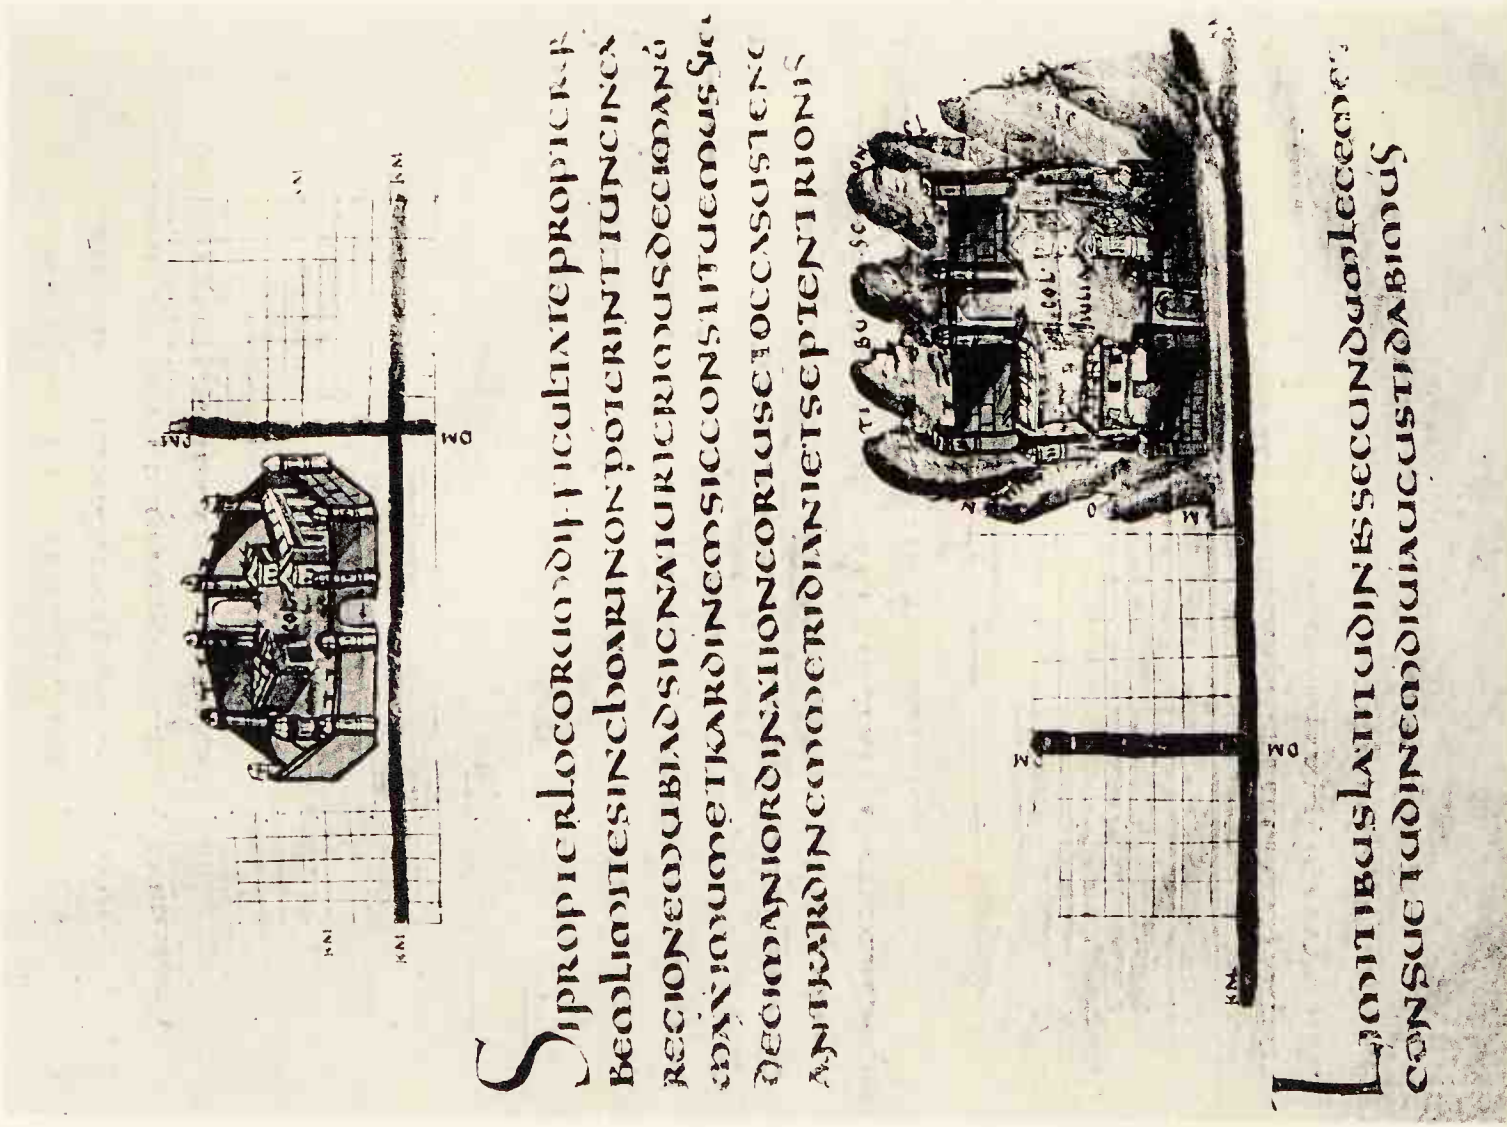 KM
KM
DM
DM
COL
KM
KM
SIPROPTERLOCORUMDIFFICULTATEPROPTERR
BEMLIMITESINCHOARINONPOTERINTTUNCINEA
REGIONEMUBIADSIGNATURIERIMUSDECIMANŪ
MAXIMUMETKARDINEMSICCONSTITUEMUSSIC
DECIMANIORDINATIONEORTUSETOCCASUSTENE
ANTKARDINEMMERIDIANIETSEPTENTRIONIS
M O N TI BU
COL
IULIA
M
DM
KM
LIMITIBUSLATITUDINESSECUNDUMLEGEMET
CONSUETUDINEMDIUIAUGUSTIDABIMUS